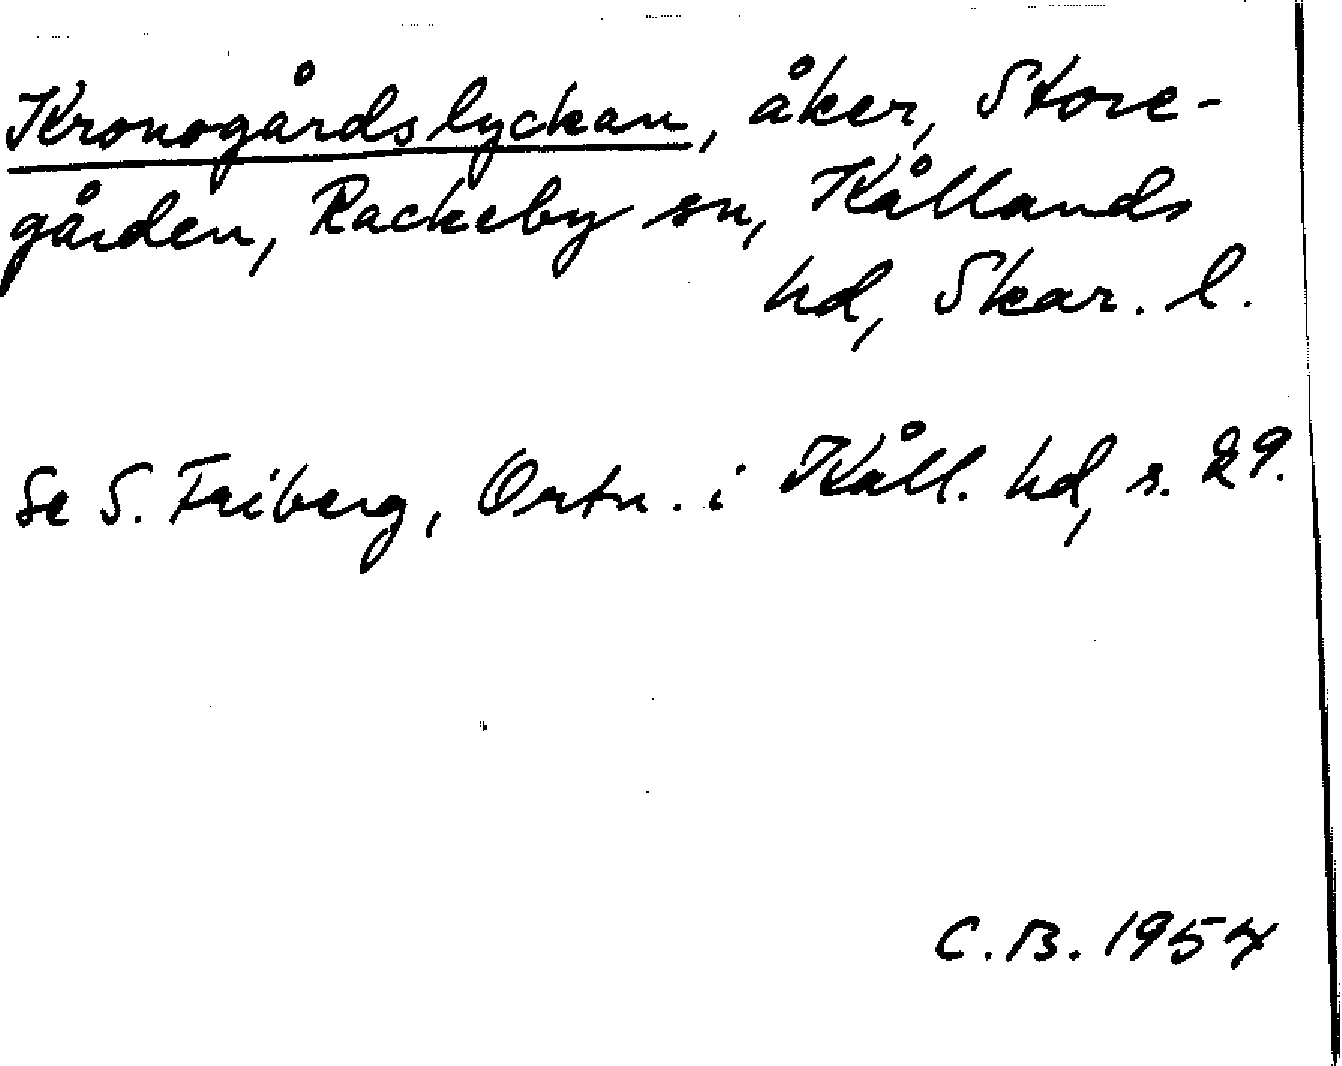 Kronogårdslyckan, åker, Store-
gården, Rackeby sn, Kållands
hd, Skar. l.
Se S. Friberg, Ortn. i Kåll. hd, s. 29.
C.B. 1954